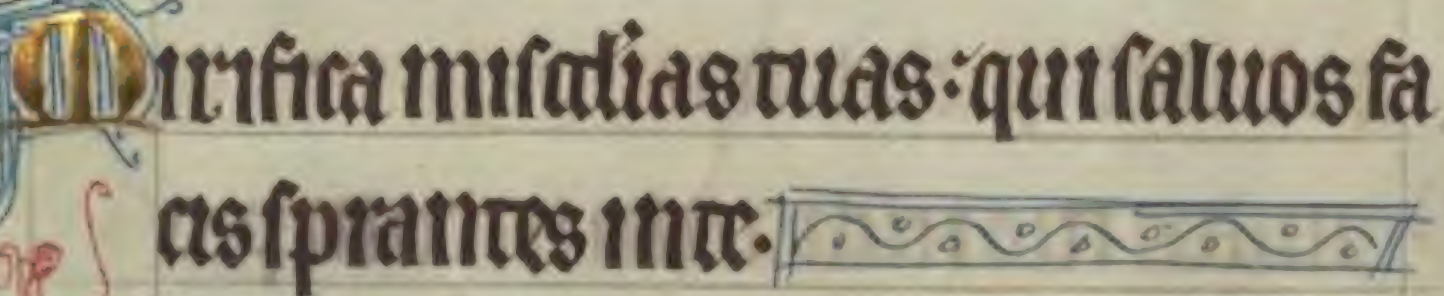 Mirifica miſcd̄ias tuas: qui ſaluos fa
cis ſperantes in te.